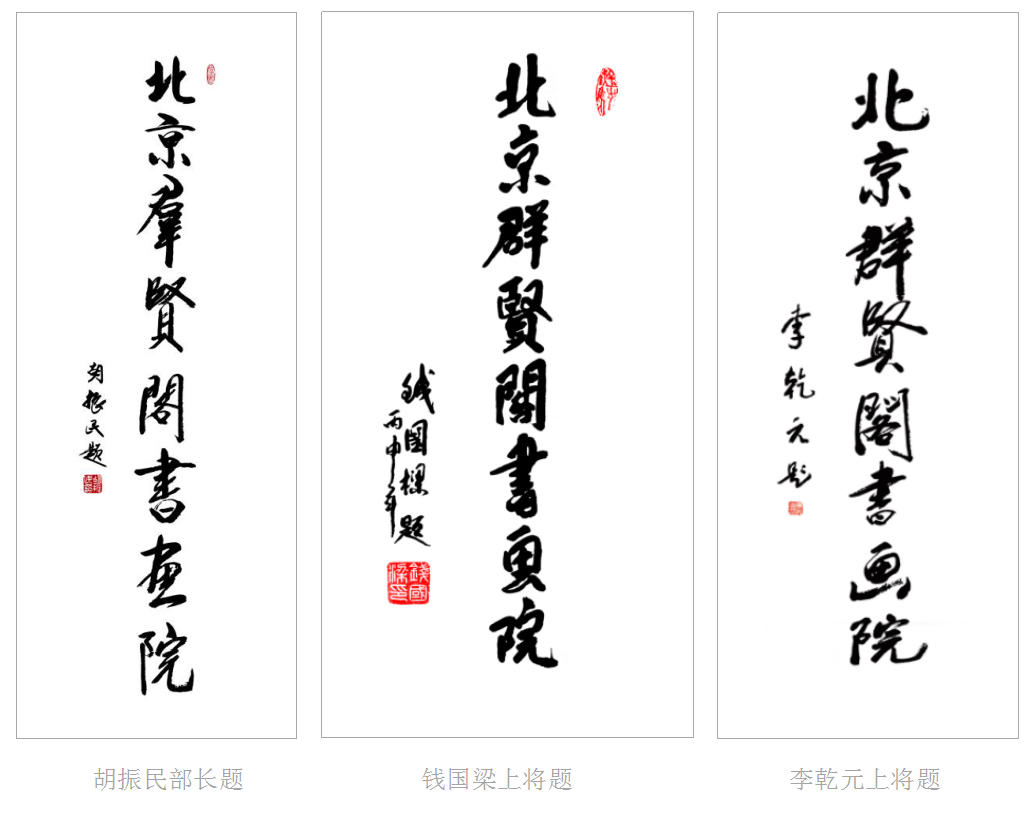 北京羣賢閣書畫院
胡振民题
胡振民部长题
北京群賢閣書画院
钱国樑题
丙申年
錢國梁印
钱国梁上将题
北京群賢閣書画院
李乾元题
李乾元上将题